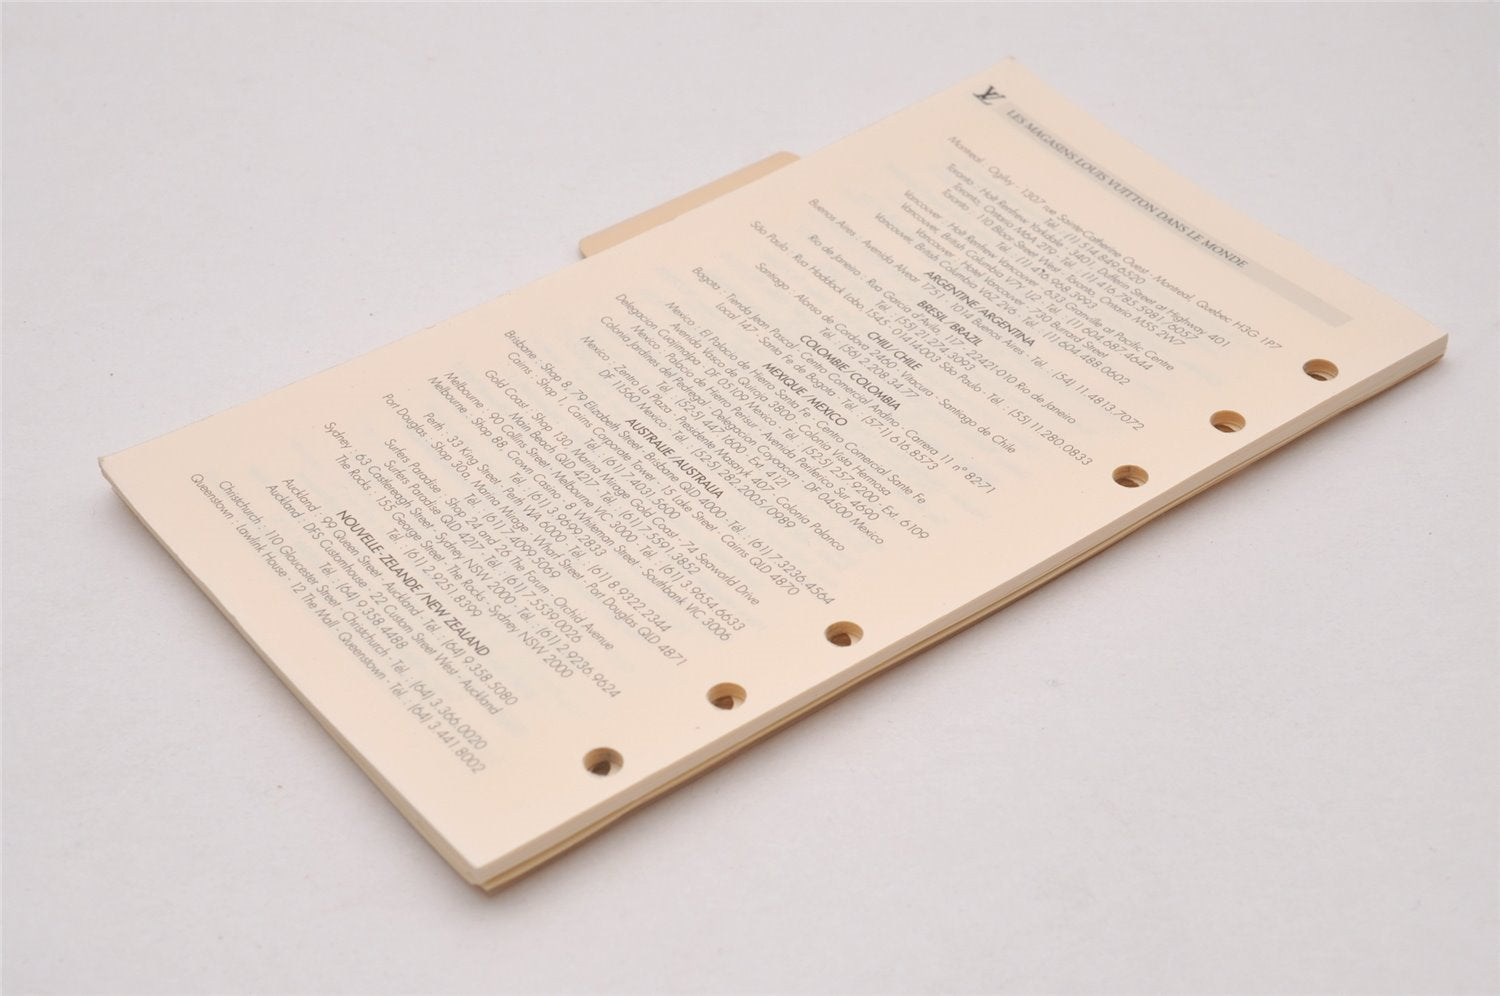 LV LES MAGASINS LOUIS VUITTON DANS LE MONDE
Montreal : Ogilvy - 1307 rue Sainte-Catherine Ouest - Montreal, Quebec H3G 1P7
Tél. : (1) 514.849.6520
Toronto : Holt Renfrew Yorkdale - 3401, Dufferin Street at Highway, 401
Toronto, Ontario M6A 2T9 - Tél. : (1) 416.785.5981/6057
Toronto : 110 Bloor Street West, Toronto, Ontario M5S 2W7
Tél. : (1) 416.968.3993
Vancouver : Holt Renfrew Vancouver - 633 Granville at Pacific Centre
Vancouver, British Columbia V7Y 1J2 - Tél. : (1) 604.687.4644
Vancouver : Hotel Vancouver - 730 Burrard Street
Vancouver, British Columbia V6Z 2V6 - Tél. : (1) 604.488.0602
ARGENTINE/ARGENTINA
Buenos Aires : Avenida Alvear 1751 - 1014 Buenos Aires - Tél. : (54) 11.4813.7072
BRESIL/BRAZIL
Rio de Janeiro : Rua Garcia d'Avila, 117 - 22421-010 Rio de Janeiro
Tél. : (55) 21.274.3993
São Paulo : Rua Haddock Lobo, 1545 - 01414-002 São Paulo - Tél. : (55) 11.280.0833
CHILI/CHILE
Santiago : Alonso de Cordova 2460 - Vitacura - Santiago de Chile
Tél. : (56) 2.208.34.77
COLOMBIE/COLOMBIA
Bogota : Tienda Jean Pascal - Centro Comercial Andino - Carrera 11 n° 8271
Local 147 - Santa Fe de Bogota - Tél. : (57) 1 616.8573
MEXIQUE/MEXICO
Mexico : El Palacio de Hierro Santa Fe - Centro Comercial Santa Fe
Avenida Vasco de Quiroga 3800 - Colonia Vista Hermosa
Delegacion Cuajimalpa - DF 05109 Mexico - Tél. : (52-5) 257.9200 - Ext. 6109
Mexico : Palacio de Hierro Perisur - Avenida Periferico Sur 4690
Colonia Jardines del Pedregal - Delegacion Coyoacan - DF 04500 Mexico
Tél. : (52-5) 447.1600 - Ext. 4121
Mexico : Zentro La Plaza - Presidente Masaryk 407 - Colonia Polanco
DF 11560 Mexico - Tél. : (52-5) 282.2005/0989
AUSTRALIE/AUSTRALIA
Brisbane : Shop 8, 79 Elizabeth Street - Brisbane QLD 4000 - Tél. : (61) 7.3236.4564
Cairns : Shop 1, Cairns Corporate Tower - 15 Lake Street - Cairns QLD 4870
Tél. : (61) 7.4031.5600
Gold Coast : Shop 130, Marina Mirage - Gold Coast - 74 Seaworld Drive
Main Beach QLD 4217 - Tél. : (61) 7.5591.3852
Melbourne : 90 Collins Street - Melbourne VIC 3000 - Tél. : (61) 3.9654.6633
Melbourne : Shop 88, Crown Casino - 8 Whiteman Street - Southbank VIC 3006
Tél. : (61) 3.9699.2833
Perth : 33 King Street - Perth WA 6000 - Tél. : (61) 8.9322.2344
Port Douglas : Shop 30a, Marina Mirage - Wharf Street - Port Douglas QLD 4871
Tél. : (61) 7.4099.5069
Surfers Paradise : Shop 24 and 26 The Forum - Orchid Avenue
Surfers Paradise QLD 4217 - Tél. : (61) 7.5539.0026
Sydney : 63 Castlereagh Street - Sydney NSW 2000 - Tél. : (61) 2.9236.9624
The Rocks : 155 George Street - The Rocks - Sydney NSW 2000
Tél. : (61) 2.9251.8399
NOUVELLE-ZELANDE/NEW ZEALAND
Auckland : 99 Queen Street - Auckland - Tél. : (64) 9.358.5080
Auckland : DFS Customhouse - 22 Custom Street West - Auckland
Tél. : (64) 9.358.4488
Christchurch : 110 Gloucester Street - Christchurch - Tél. : (64) 3.366.0020
Queenstown : Lawlink House - 12 The Mall - Queenstown - Tél. : (64) 3.441.8002